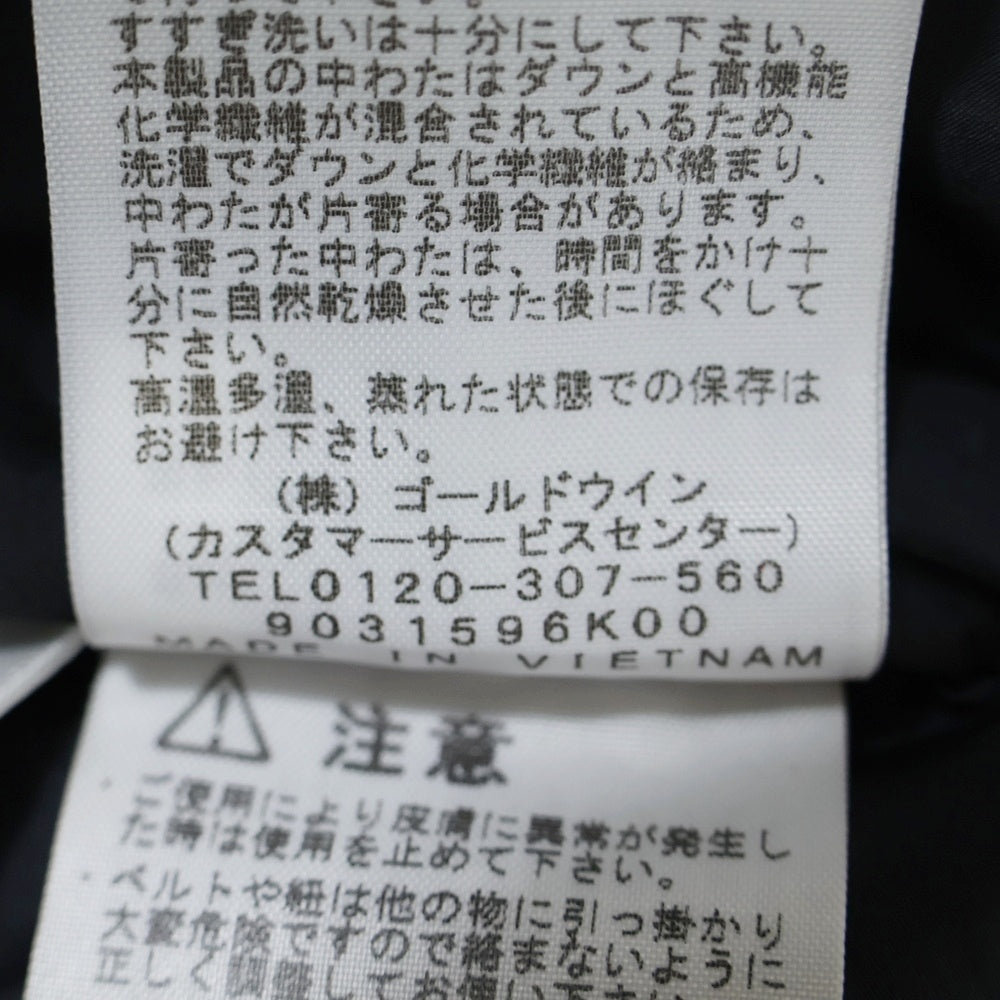 すすぎ洗いは十分にして下さい。
本製品の中わたはダウンと高機能
化学繊維が混合されているため、
洗濯でダウンと化学繊維が絡まり、
中わたが片寄る場合があります。
片寄った中わたは、時間をかけ十
分に自然乾燥させた後にほぐして
下さい。
高温多湿、蒸れた状態での保存は
お避け下さい。
(株) ゴールドウイン
(カスタマーサービスセンター)
TEL0120-307-560
9031596K00
MADE IN VIETNAM
注意
・ご使用により皮膚に異常が発生し
た時は使用を止めて下さい。
・ベルトや紐は他の物に引っ掛かり
大変危険ですので絡まないように
正しく調整してお使い下さい